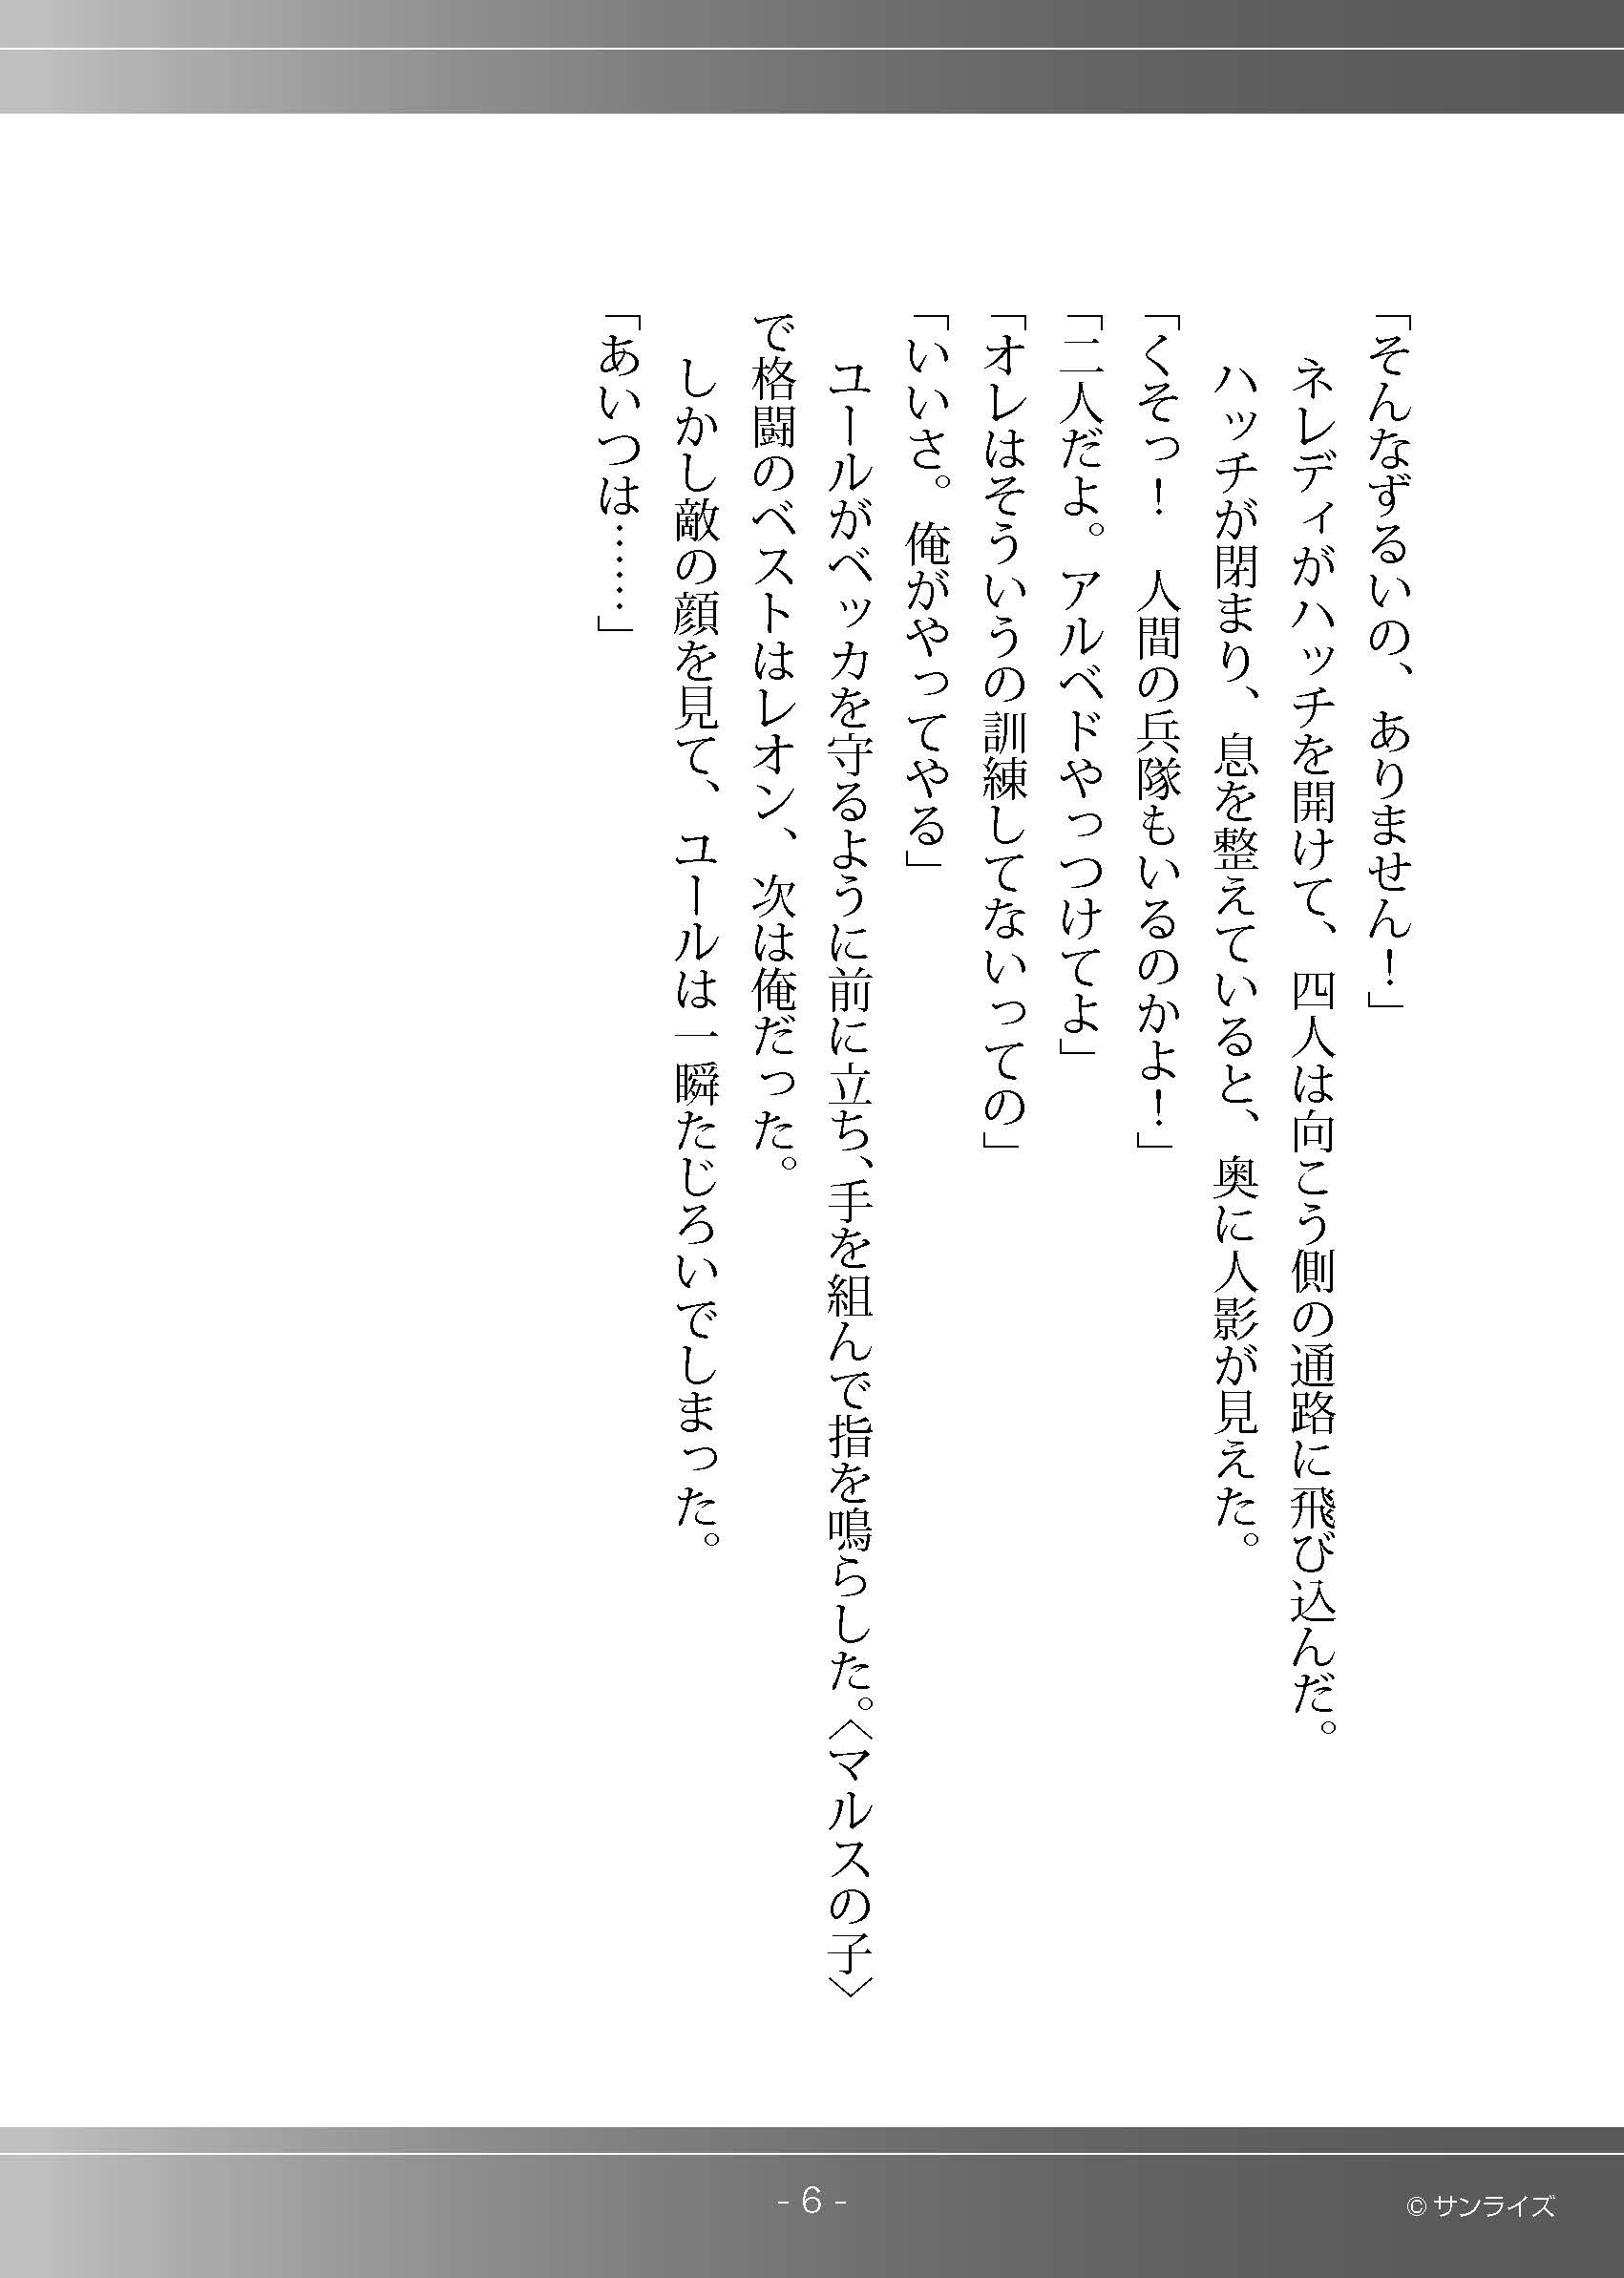 「そんなずるいの、ありません！」
　ネレディがハッチを開けて、四人は向こう側の通路に飛び込んだ。
　ハッチが閉まり、息を整えていると、奥に人影が見えた。
「くそっ！　人間の兵隊もいるのかよ！」
「二人だよ。アルベドやっつけてよ」
「オレはそういうの訓練してないっての」
「いいさ。俺がやってやる」
　ユールがベッカを守るように前に立ち、手を組んで指を鳴らした。〈マルスの子〉
で格闘のベストはレオン、次は俺だった。
　しかし敵の顔を見て、ユールは一瞬たじろいでしまった。
「あいつは……」
- 6 -
© サンライズ